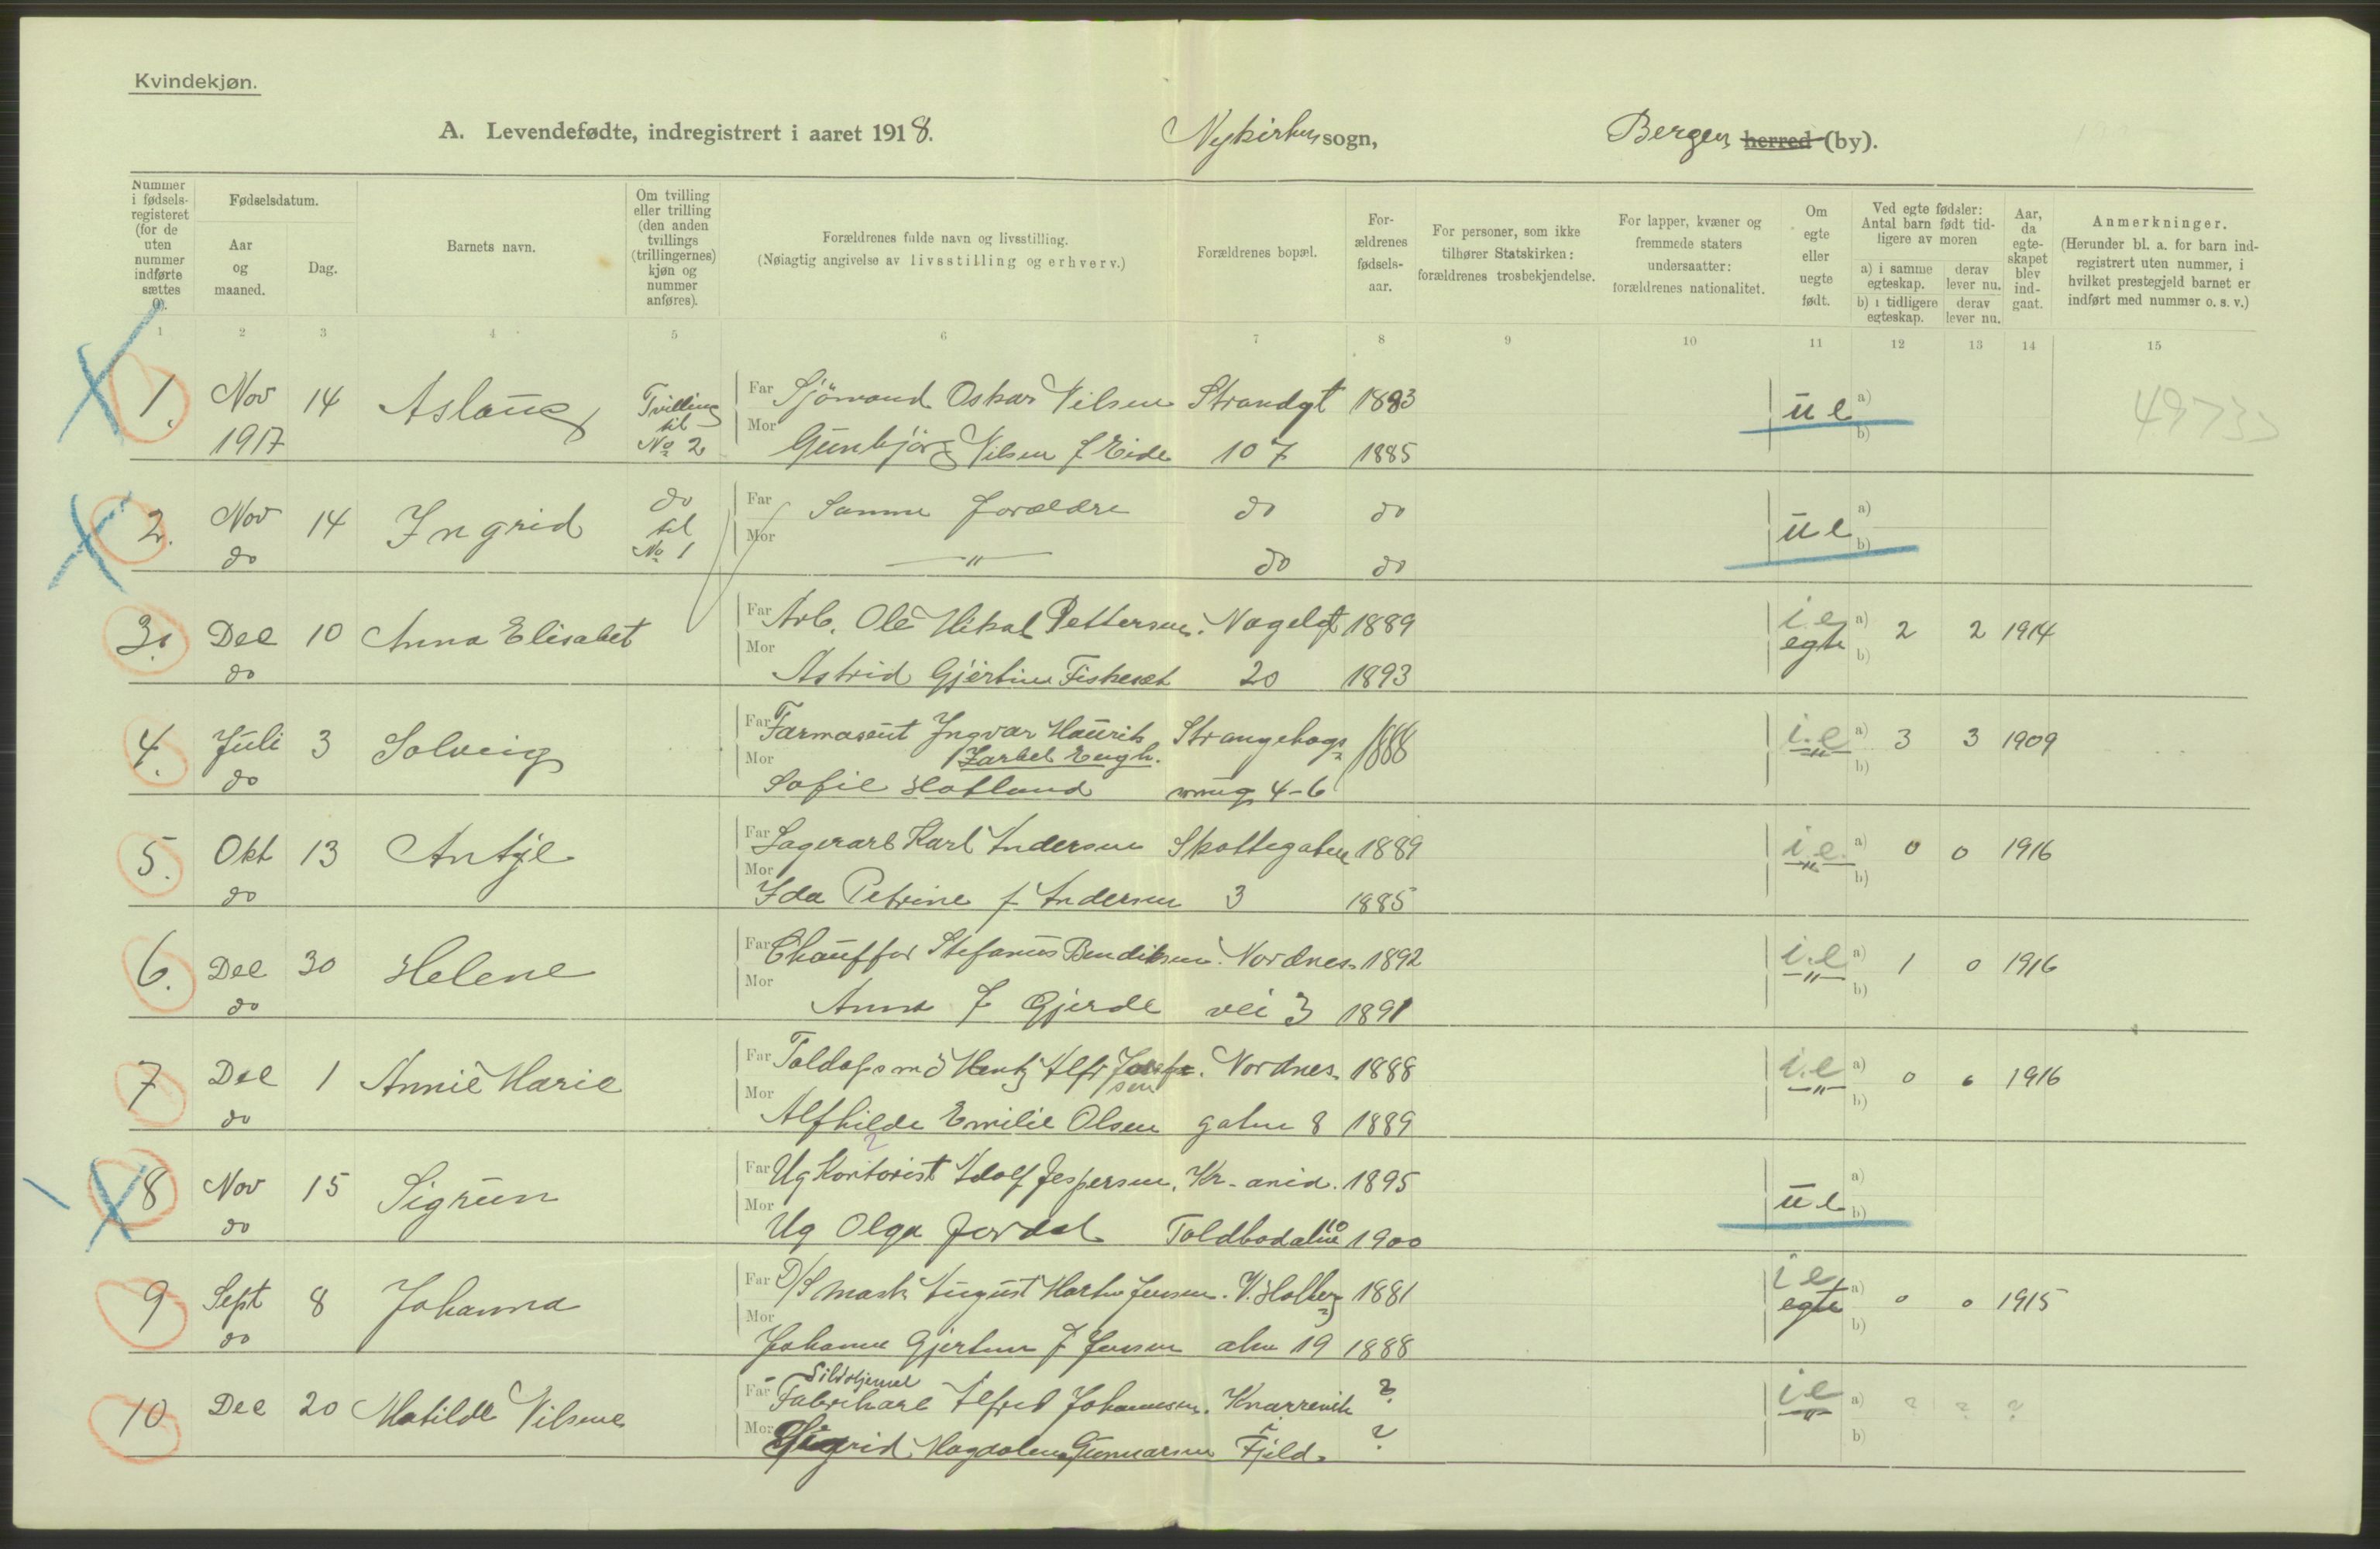 Kvindekjøn.
A. Levendefødte, indregistrert i aaret 1918. Nykirkens sogn, Bergen herred (by).
Nummer i fødselsregisteret (for de uten nummer indførte sættes 0).
Fødselsdatum.
Aar og maaned.
Dag.
Barnets navn.
Om tvilling eller trilling (den anden tvillings (trillingernes) kjøn og nummer anføres).
Forældrenes fulde navn og livsstilling.
(Nøiagtig angivelse av livsstilling og erhverv.)
Forældrenes bopæl.
Forældrenes fødselsaar.
For personer, som ikke tilhører Statskirken: forældrenes trosbekjendelse.
For lapper, kvæner og fremmede staters undersaatter: forældrenes nationalitet.
Om egte eller uegte født.
Ved egte fødsler: Antal barn født tidligere av moren
a) i samme egteskap. derav lever nu.
b) i tidligere egteskap. derav lever nu.
Aar, da egteskapet blev indgaat.
Anmerkninger.
(Herunder bl. a. for barn indregistrert uten nummer, i hvilket prestegjeld barnet er indført med nummer o. s. v.)
1 2 3 4 5 6 7 8 9 10 11 12 13 14 15
1. Nov 14 Aslaug Tvilling til No 2 Far Sjömand Oskar Nilsen Strandgt 1883 u e a) 49733
1917 Mor Gunbjörg Nilsen f Eide 107 1885 b)
2. Nov 14 Ingrid do til No 1 Far Samme forældre do do u e a)
do Mor — " — do do b)
3. Dec 10 Anna Elisabet Far Arb. Ole Mikal Pettersen. Nagelgt 1889 i.e egte a) 2 2 1914
do Mor Astrid Gjertine Fiskeset 20 1893 b)
4. Juli 3 Solveig Far Farmaseut Ingvar Maurits Strangehags 1888 i.e — " — a) 3 3 1909
do Mor Isabel Engh.
Sofie Hatland 4-6 b)
5. Okt 13 Antje Far Lagerarb Karl Andersen Skottegaten 1889 i.e. — " — a) 0 0 1916
do Mor Ida Petrine f Andersen 3 1885 b)
6. Dec 30 Helene Far Chauffør Stefanus Bendiksen. Nordnes- 1892 i.e — " — a) 1 0 1916
do Mor Anna f Gjerde vei 3 1891 b)
7 Dec 1 Annie Marie Far Nordnes- 1888 i.e — " — a) 0 0 1916
do Mor Alfhilde Emilie Olsen gaten 8 1889 b)
8 Nov 15 Sigrun Far Ug Kontorist Adolf Jespersen. Kr-ania. 1895 u e a)
do Mor Ug Olga Jordal Toldbodalm 10 1900 b)
9 Sept 8 Johanna Far D/S Mask August Martin Jensen. V. Holberg 1881 i e egte a) 0 0 1915
do Mor Johanne Gjertine f Jensen alm 19 1888 b)
10 Dec 20 Matilde Nilsine Far Sildoljemel Fabrikarb Alfred Johannesen. Knarrevik ? i e — " — a) ? ? ?
Mor Sigrid Magdalene Gunnarsen i Fjeld. ? b)